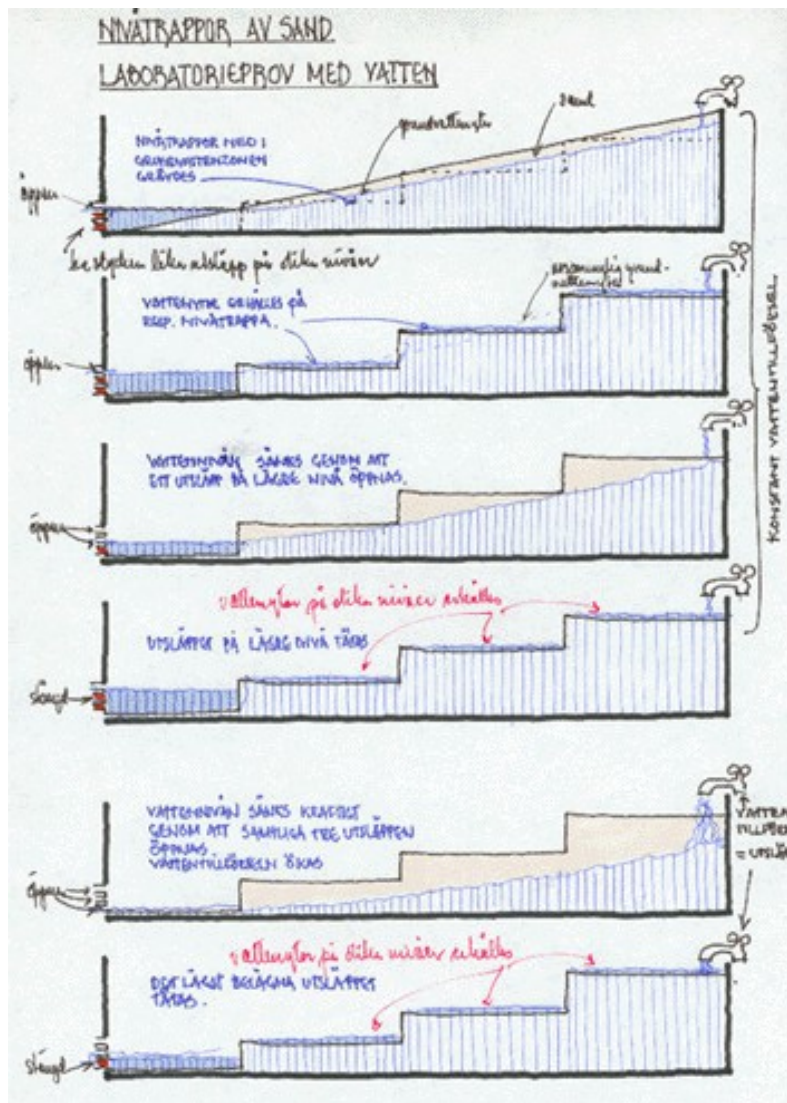 NIVÅTRAPPOR AV SAND
LABORATORIEPROV MED VATTEN
NIVÅTRAPPOR MED I
GRÄVDES
grundvattenyta
sand
öppen
tre stycken lika utsläpp på olika nivåer
VATTENYTOR ERHÅLLES PÅ
RESP. NIVÅTRAPPA.
ursprunglig grund-
vattenyta
öppen
VATTENNIVÅN SÄNKS GENOM ATT
ETT UTSLÄPP PÅ LÄGRE NIVÅ ÖPPNAS.
öppen
KONSTANT VATTENTILLFÖRSEL
vattenytor på olika nivåer erhålles
UTSLÄPPET PÅ LÄGRE NIVÅ TÄTAS
stängd
VATTENNIVÅN SÄNKS KRAFTIGT
GENOM ATT SAMTLIGA TRE UTSLÄPPEN
ÖPPNAS
VATTENTILLFÖRSELN ÖKAS
öppen
vattenytor på olika nivåer erhålles
DET LÄGST BELÄGNA UTSLÄPPET
TÄTAS.
stängd